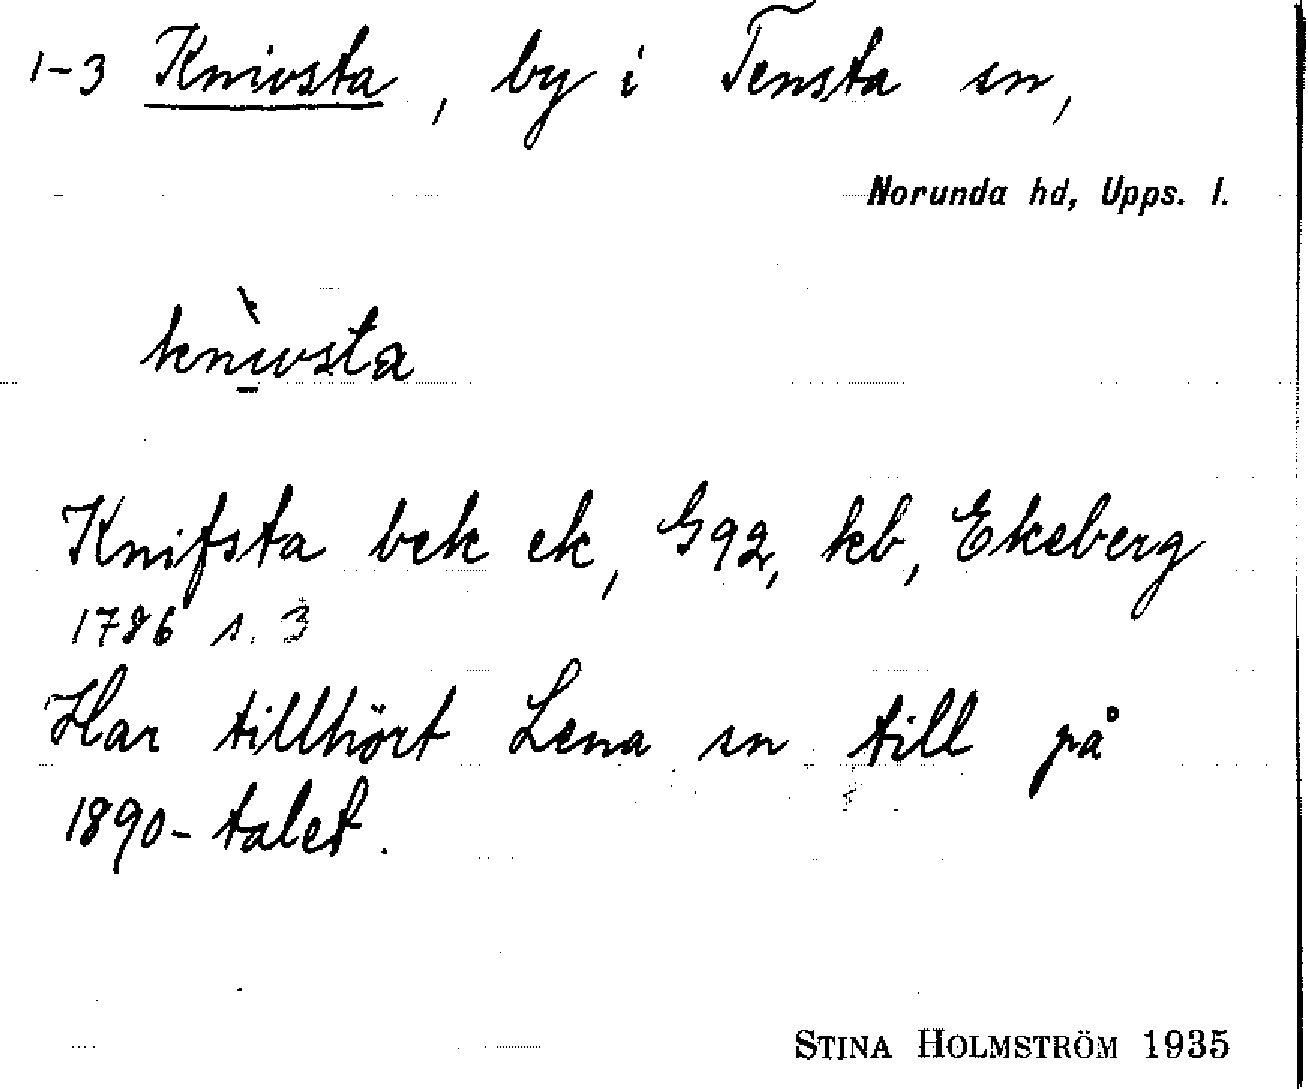 1-3 Knivsta, by i Tensta sn,
Norunda hd, Upps. l.
knı̱̀vsta
Knifsta bek ek, G92, kb, Ekeberg
1786 s. 3
Har tillhört Lena sn till på
1890-talet.
STINA HOLMSTRÖM 1935